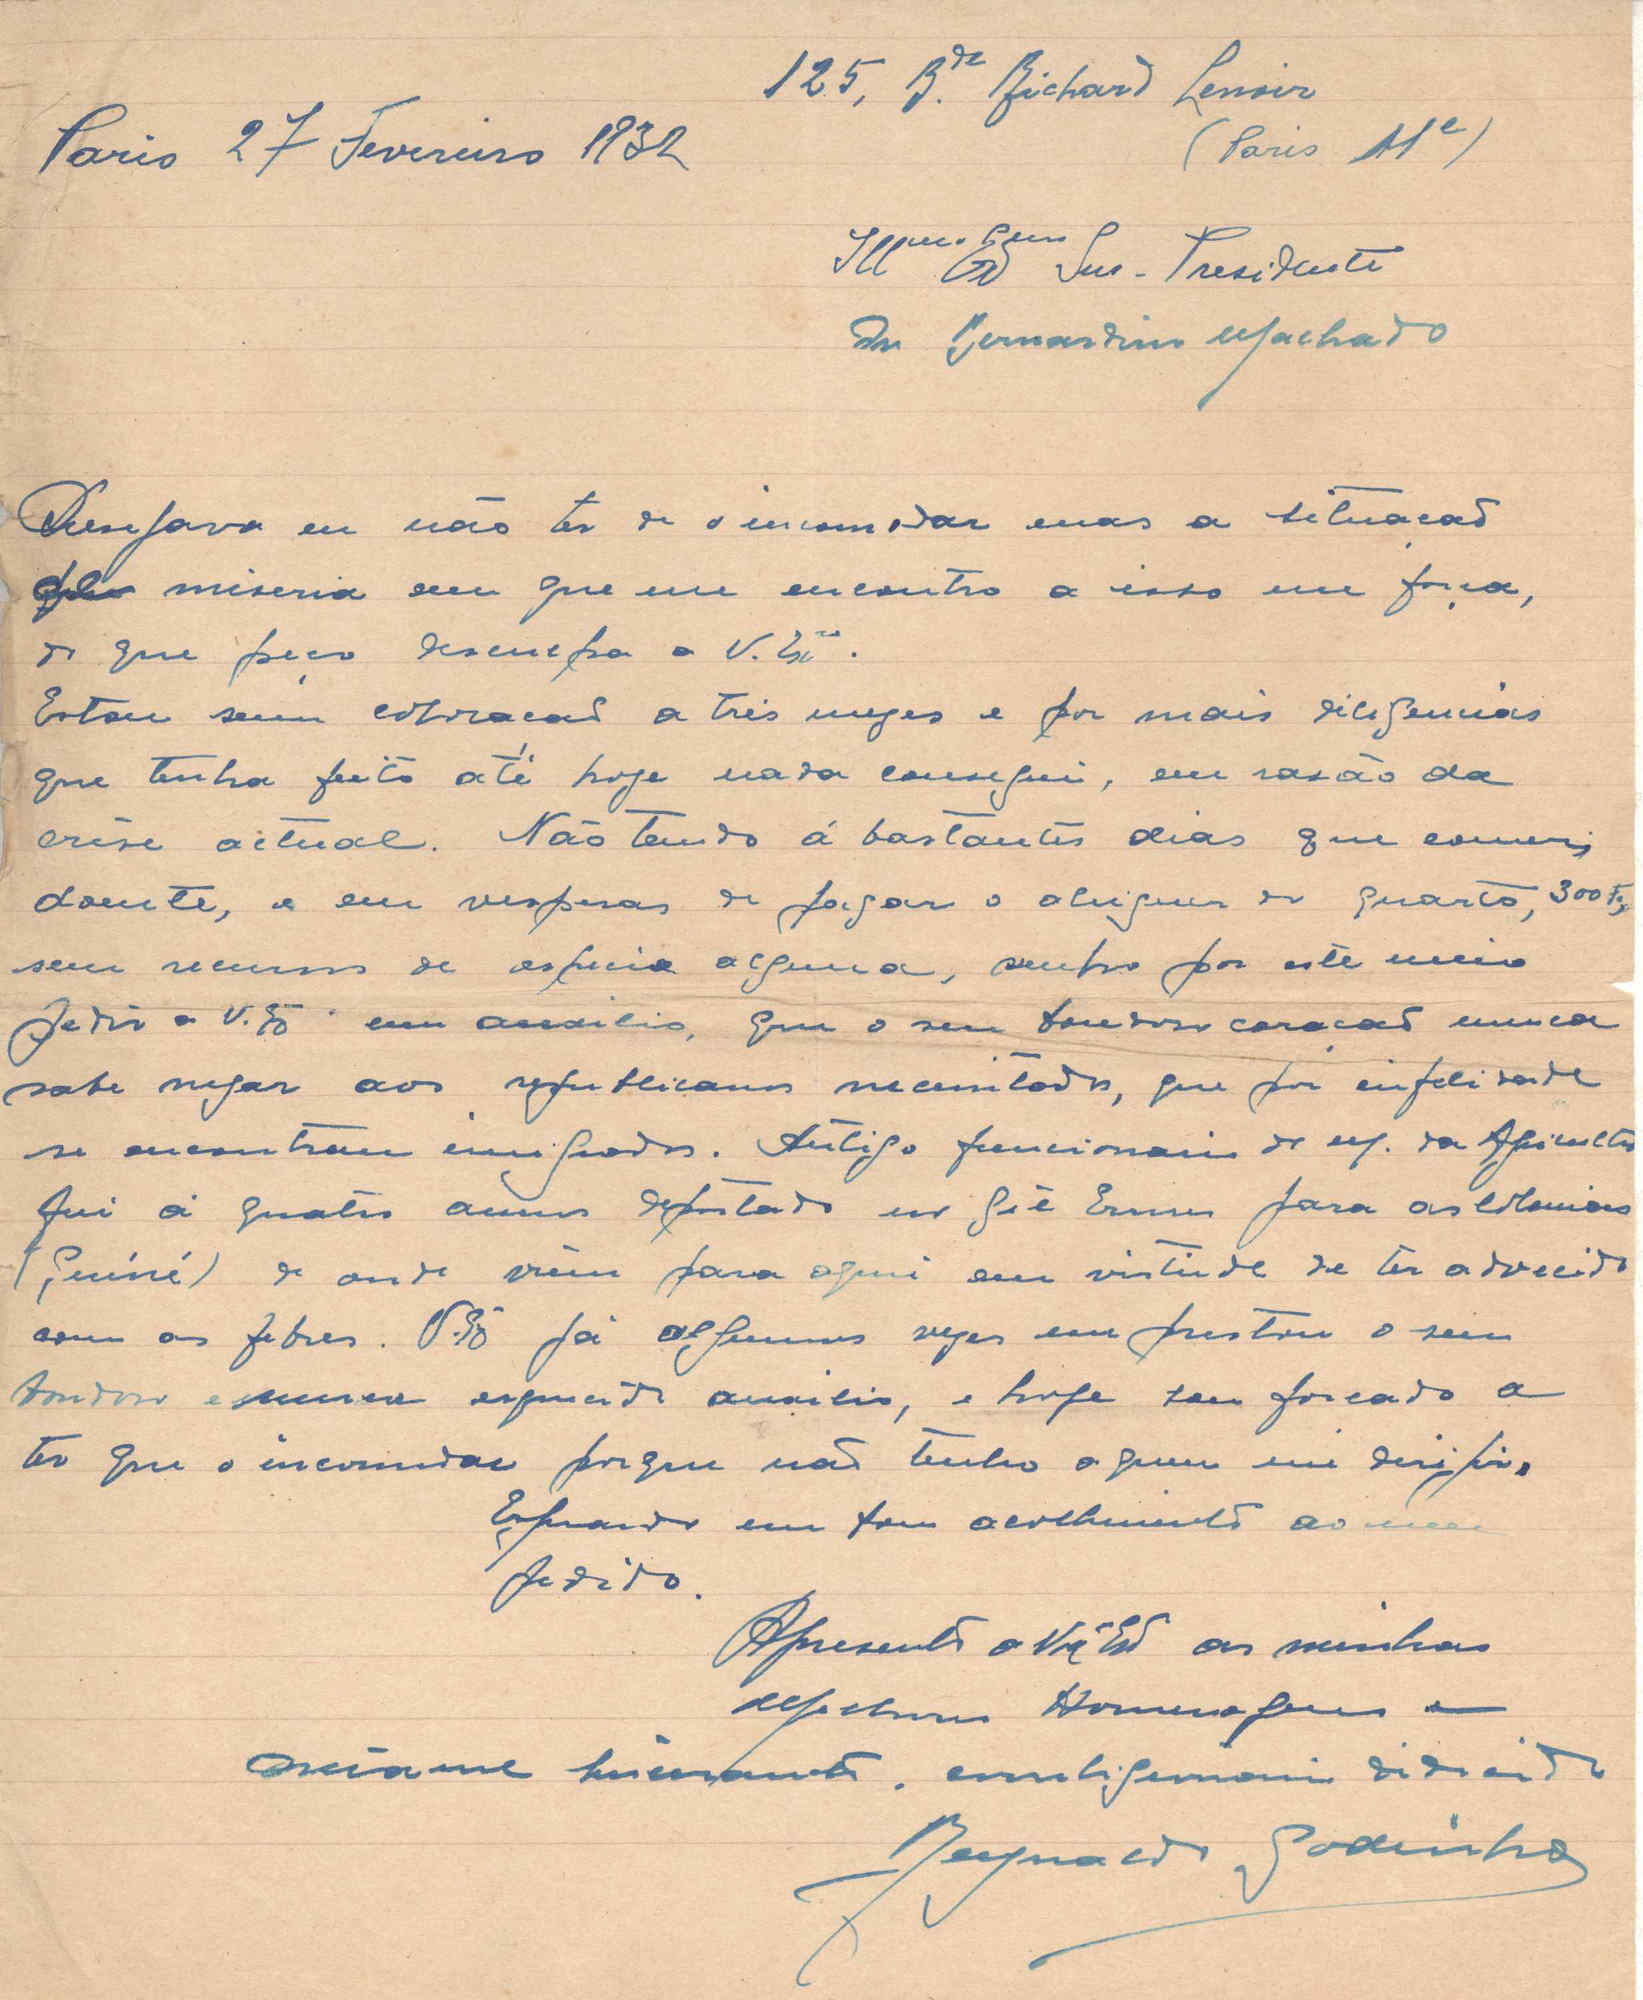 125, B.de Richard Lenoir
Paris 27 Fevereiro 1932
(Paris 11e)
Illmo Exmo Snr. Presidente
Dr Bernardino Machado
Desejava eu não ter de o incomodar mas a situacaõ
de miseria em que me encontro a isso me força,
do que peço desculpa a V. Exa.
Estou sem colocacaõ a três mezes e por mais diligencias
que tenha feito até hoje nada consegui, em rasão da
crise actual. Não tendo á bastantes dias que comer,
doente, e em vesperas de pagar o aluguer do quarto, 300 Fr,
sem recursos de especie alguma, venho por este meio
pedir a V. Exa um auxilio, que o seu bondoso coraçaõ nunca
sabe negar aos republicanos necessitados, que por infelicidade
se encontram emigrados. Antigo funcionario do M. da Agricultura
fui á quatro annos deportado no Gil Ennes para as Colonias
(Guiné) de onde vim para aqui em virtude de ter adoecido
com as febres. V. Exa já algumas vezes me prestou o seu
bondoso e nunca esquecido auxilio, e hoje sou forcado a
ter que o incomodar porque naõ tenho a quem me dirigir.
Esperando um bom acolhimento ao meu
pedido.
Apresento a V. Exa as minhas
Melhores Homenagens e
correligionario dedicado
Reynaldo Godinho